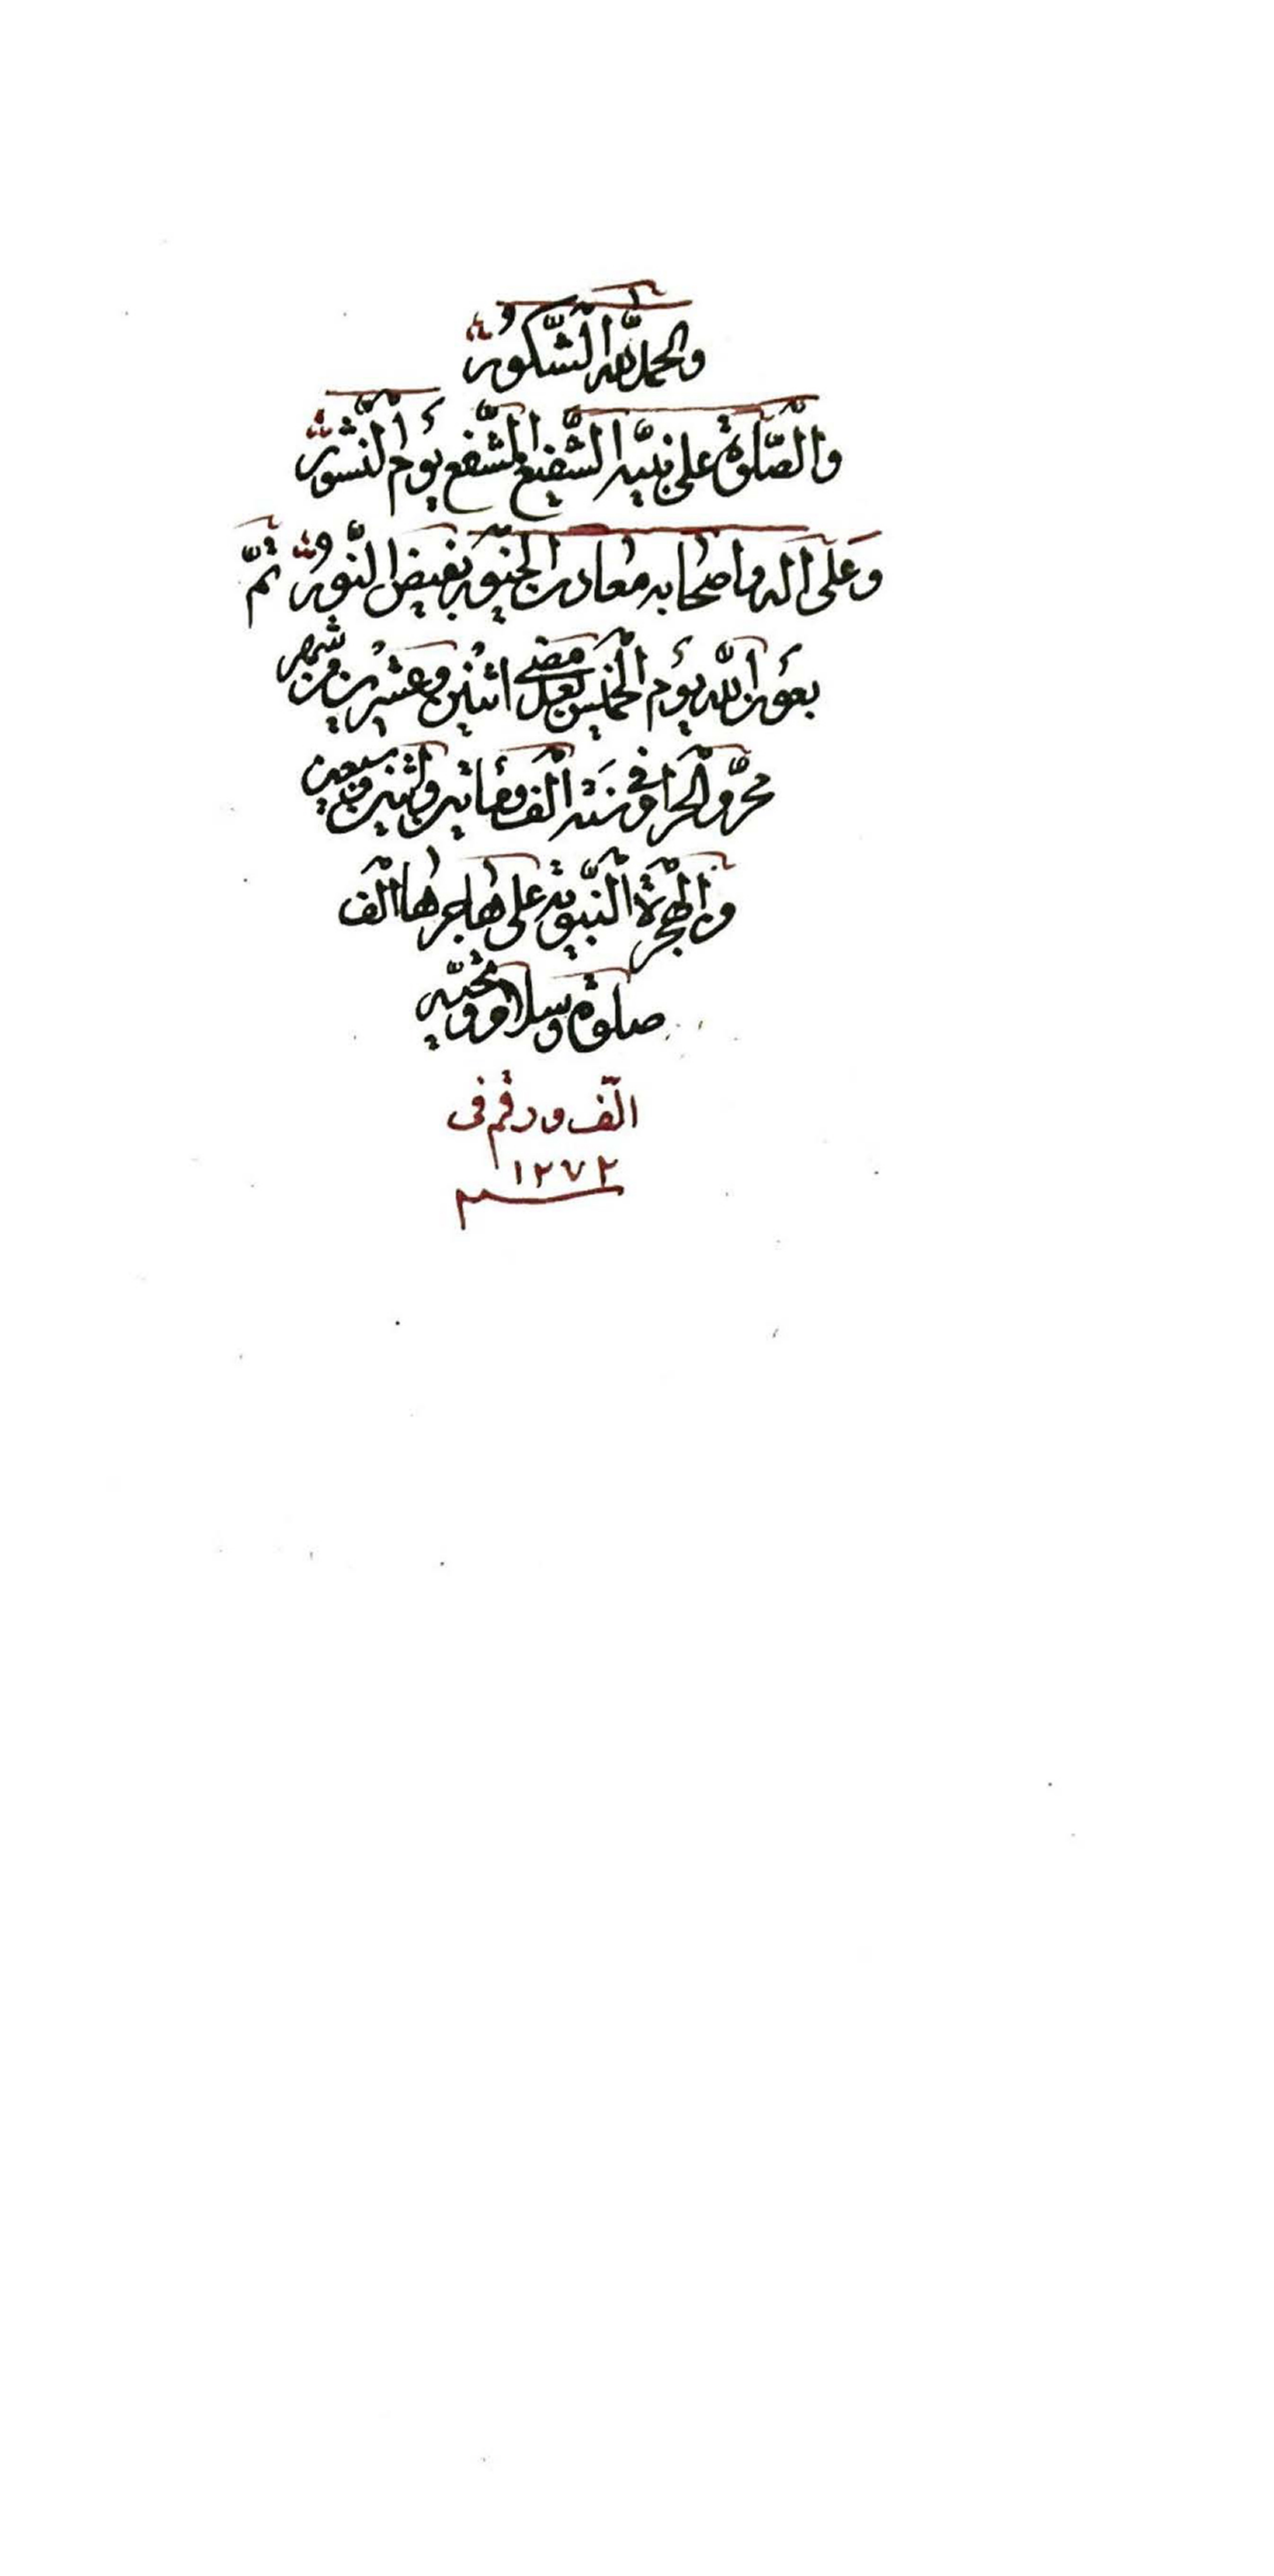 والحمد لله الشكور
والصلوة على نبيه الشفيع المشفع يوم النشور
وعلى اله واصحابه معادن بفيض النور تم
بعون الله يوم الخميس بعد مضى اثنين وعشرين من شهر
محرم الحرام فى سنة الف ومأتين واثنين وسبعين
من الهجرة النبوية على هاجرها الف
صلوة وسلام وتحيه
الف ورقم فى
١٢٧٢